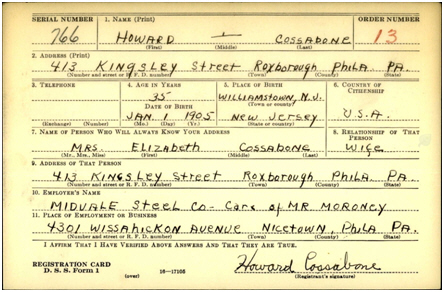 SERIAL NUMBER 1. NAME (Print) ORDER NUMBER
766 HOWARD — COSSABONE 13
(First) (Middle) (Last)
2. ADDRESS (Print)
413 KINGSLEY STREET ROXBOROUGH PHILA PA.
(Number and street or R. F. D. number) (Town) (County) (State)
3. TELEPHONE 4. AGE IN YEARS 5. PLACE OF BIRTH 6. COUNTRY OF CITIZENSHIP
35 WILLIAMSTOWN, N.J.
DATE OF BIRTH (Town or county)
JAN 1 1905 NEW JERSEY U.S.A.
(Exchange) (Number) (Mo.) (Day) (Yr.) (State or country)
7. NAME OF PERSON WHO WILL ALWAYS KNOW YOUR ADDRESS 8. RELATIONSHIP OF THAT PERSON
MRS. ELIZABETH COSSABONE WIFE
(Mr., Mrs., Miss) (First) (Middle) (Last)
9. ADDRESS OF THAT PERSON
413 KINGSLEY STREET ROXBOROUGH PHILA PA.
(Number and street or R. F. D. number) (Town) (County) (State)
10. EMPLOYER'S NAME
MIDVALE STEEL CO- CARE OF MR MORONEY
11. PLACE OF EMPLOYMENT OR BUSINESS
4301 WISSAHICKON AVENUE NICETOWN, PHILA PA.
(Number and street or R. F. D. number) (Town) (County) (State)
I AFFIRM THAT I HAVE VERIFIED ABOVE ANSWERS AND THAT THEY ARE TRUE.
REGISTRATION CARD Howard Cossabone
D. S. S. Form 1 (over) 16—17105 (Registrant's signature)